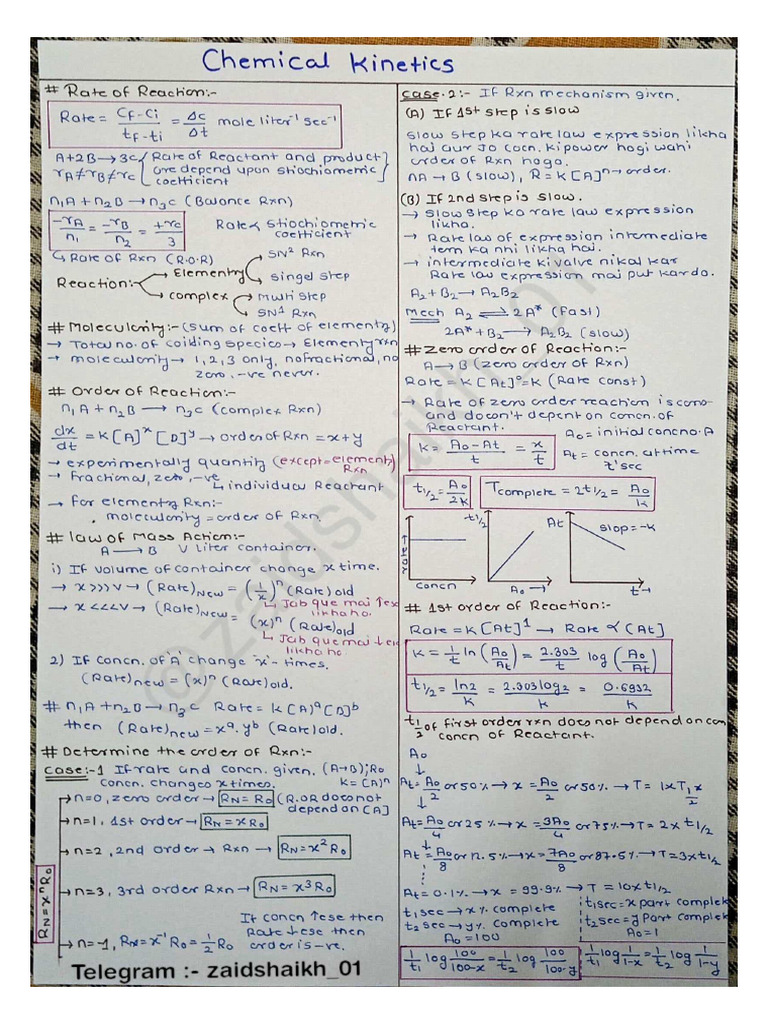 Chemical Kinetics
# Rate of Reaction:-
Rate = Cf-Ci / tf-ti = Δc / Δt mole liter⁻¹ sec⁻¹
A+2B→3C { Rate of Reactant and product
rA≠rB≠rC { are depend upon stiochiometric
coefficient }
n₁A + n₂B → n₃C (Balance Rxn)
-rA / n₁ = -rB / n₂ = +rc / 3 Rate ∝ Stiochiometric
coefficient
↳ Rate of Rxn (R.O.R)
SN² Rxn
Elementry
singel step
Reaction:-
complex
multi step
SN¹ Rxn
# Molecularity:- (sum of coeff of elementy)
→ Total no. of coliding species → Elementry rxn
→ molecularity → 1, 2, 3 only, no fractional, no
zero, -ve never.
# Order of Reaction:-
n₁A + n₂B → n₃C (complex Rxn)
dx / dt = K [A]ˣ [D]ʸ → order of Rxn = x+y
→ experimentally quantity (except = elementry
Rxn
→ Fractional, zero, -ve
↳ individual Reactant
→ For elementry Rxn:-
molecularity = order of Rxn.
# law of Mass Action:-
A → B V liter container.
i) If volume of container change x time.
→ x>>>V → (Rate)New = (1/x)ⁿ (Rate)old
↳ Jab que mai ↑ese
likha ho.
→ x<<<V → (Rate)New = (x)ⁿ (Rate)old
↳ Jab que mai ↓ei
likha ho
2) If concn. of 'A' change 'x'- times.
(Rate)new = (x)ⁿ (Rate)old.
# n₁A + n₂B → n₃C Rate = K [A]ᵃ [B]ᵇ
then (Rate)new = xᵃ. yᵇ (Rate)old.
# Determine the order of Rxn:-
case:-1 If rate and concn. given. (A→B); R₀
concn. changed x times. K=(A)ⁿ
→ n=0, zero order → RN = R₀ (R.OR does not
depend on [A]
→ n=1, 1st order → RN = xR₀
→ n=2, 2nd order → Rxn → RN = x²R₀
→ n=3, 3rd order Rxn → RN = x³R₀
RN = xⁿR₀
If concn ↑ese then
Rate ↓ese then
order is -ve.
→ n=-1, RN = x⁻¹R₀ = 1/2 R₀
Telegram :- zaidshaikh_01
case.2:- If Rxn mechanism given.
(A) If 1st step is slow
slow step ka rate law expression likha
hai aur Jo cocn. ki power hogi wahi
order of Rxn hoga.
nA → B (slow), R = K [A]ⁿ → order.
(B) If 2nd step is slow.
→ slow step ka rate law expression
likha.
→ Rate law of expression intermediate
term ka nhi likha hai.
→ intermediate ki valve nikal kar
Rate law expression mai put kardo.
A₂ + B₂ → A₂B₂
Mech A₂ ⇌ 2A* (fast)
2A* + B₂ → A₂B₂ (slow)
# Zero order of Reaction:-
A → B (zero order of Rxn)
Rate = K [At]⁰ = K (Rate const)
→ Rate of zero order reaction is cons
and doesn't depent on concn. of
Reactant.
A₀ = initial concn. A
K = A₀-At / t = x / t
At = concn. at time
t'sec
t1/2 = A₀ / 2K
Tcomplete = 2t1/2 = A₀ / K
Rate
concn
t1/2
A₀ →
At
slop = -K
t →
# 1st order of Reaction:-
Rate = K [At]¹ → Rate ∝ [At]
K = 1/t ln (A₀/At) = 2.303/t log (A₀/At)
t1/2 = ln2 / K = 2.303 log2 / K = 0.6932 / K
t1/2 of first order rxn does not depend on con
concn of Reactant.
A₀
↓
At = A₀/2 or 50% → x = A₀/2 or 50% → T = 1xT1/2
↓
At = A₀/4 or 25% → x = 3A₀/4 or 75% → T = 2x t1/2
↓
At = A₀/8 or 12.5% → x = 7A₀/8 or 87.5% → T = 3x t1/2
↓
At = 0.1% → x = 99.9% → T = 10x t1/2
t₁sec → x% complete
t₂sec → y% complete
A₀ = 100
t₁sec = x part complet
t₂sec = y part complet
A₀ = 1
1/t₁ log 100/100-x = 1/t₂ log 100/100-y
1/t₁ log 1/1-x = 1/t₂ log 1/1-y
@zaidshaikh_01